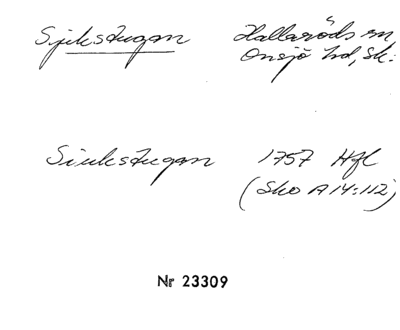 Sjukstugan Hallaröds sn
Onsjö hd, Sk:
Siukstugan 1757 Hfl
(Sko A14:112)
Nr 23309